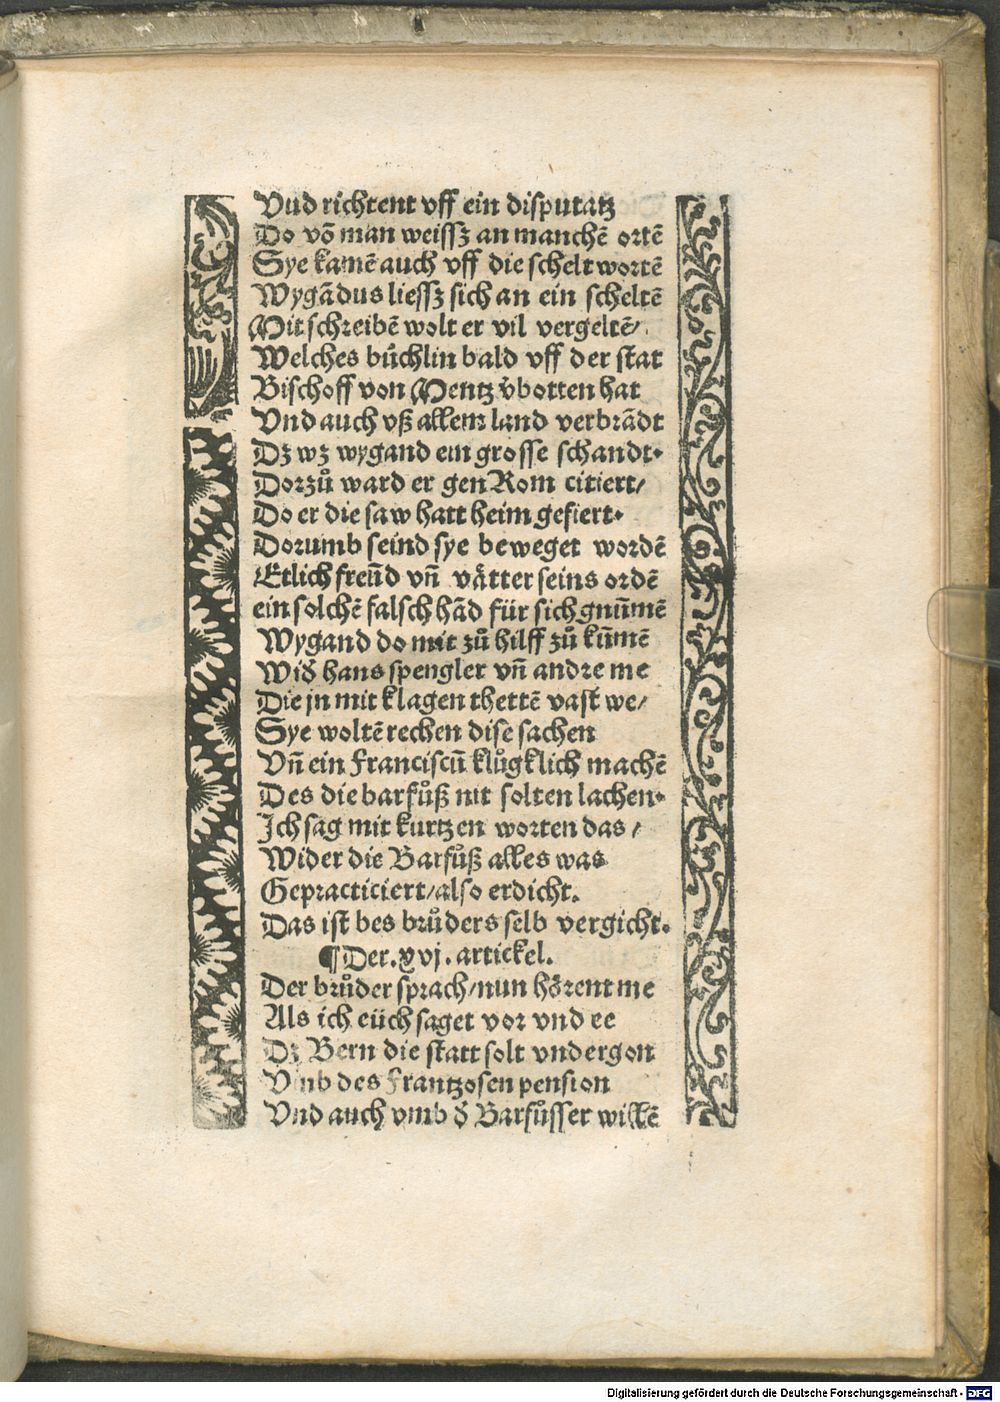 Vnd richtent vff ein disputatz
Do võ man weissz an manchẽ ortẽ
Sye kamẽ auch vff die schelt wortẽ
Wygãdus liessz sich an ein scheltẽ
Mit schreibẽ wolt er vil vergeltẽ/
Welches bůchlin bald vff der stat
Bischoff von Mentz v̄botten hat
Vnd auch vß allem land verbrãdt
Dz wz wygand ein grosse schandt.
Dorzů ward er gen Rom citiert/
Do er die saw hatt heim gefiert.
Dorumb seind sye beweget wordẽ
Etlich freũd vñ vaͤtter seins ordẽ
ein solchẽ falsch hãd für sich gnũmẽ
Wygand do mit zů hilff zů kũmẽ
Wid̄ hans spengler vñ andre me
Die jn mit klagen thettẽ vast we/
Sye woltẽ rechen dise sachen
Vñ ein Franciscũ klůgklich machẽ
Des die barfůß nit solten lachen.
Ich sag mit kurtzen worten das/
Wider die Barfůß alles was
Gepracticiert/also erdicht.
Das ist bes brůders selb vergicht.
¶Der.xvj.artickel.
Der brůder sprach/nun hoͤrent me
Als ich eüch saget vor vnd ee
Dz Bern die statt solt vndergon
Vmb des Frantzosen pension
Vnd auch vmb d̄ Barfůsser willẽ
Digitalisierung gefördert durch die Deutsche Forschungsgemeinschaft - DFG